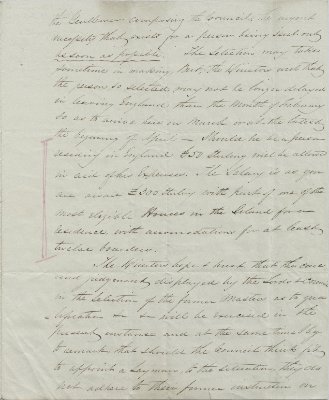 the Gentlemen composing the Council. The urgent
necessity that exists for a person being sent out
as soon as possible. The Selection may take
sometime in making But, the Directors wish that
the person so selected may not be longer delayed
in leaving England than the Month of February
so as to arrive here in March or at the latest
the beginning of April — Should he be a person
residing in England £50 Sterling will be allowed
in aid of his Expenses. The Salary is as you
are aware £300 Sterling with part of one of the
most eligible Houses in the Island for a
residence, with accommodations for at least
twelve boarders.
The Directors hope & trust that the care
and judgement displayed by the
in the Selection of the former Master as to qua
lification will be exercised in the
present instance and at the same time beg
to remark that should the Council think fit
to appoint a Layman to the Situation they do
not adhere to their former instruction on